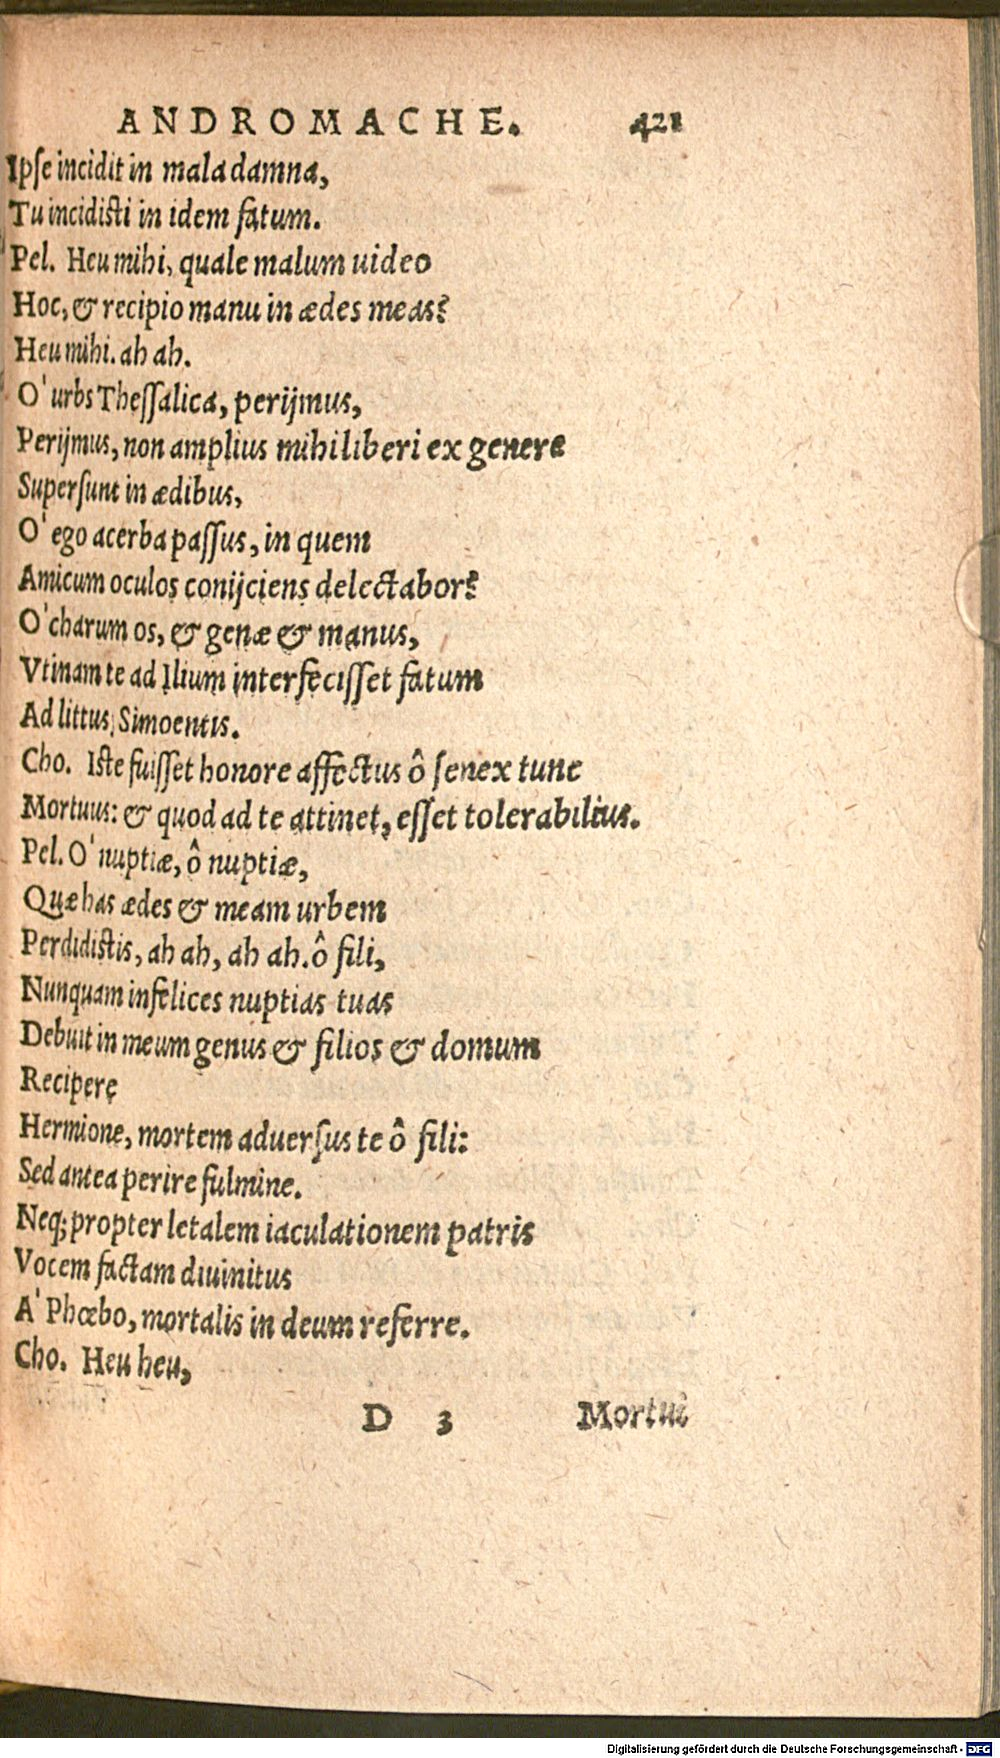 ANDROMACHE. 421
Ipse incidit in mala damna,
Tu incidisti in idem fatum.
Pel. Heu mihi, quale malum uideo
Hoc, & recipio manu in ædes meas?
Heu mihi. ah ah.
O' urbs Thessalica, perijmus,
Perijmus, non amplius mihi liberi ex genere
Supersunt in ædibus,
O' ego acerba passus, in quem
Amicum oculos conijciens delectabor?
O' charum os, & genæ & manus,
Vtinam te ad Ilium interfecisset fatum
Ad littus Simoentis.
Cho. Iste fuisset honore affectus ô senex tunc
Mortuus: & quod ad te attinet, esset tolerabilius.
Pel. O' nuptiæ, ô nuptiæ,
Quæ has ædes & meam urbem
Perdidistis, ah ah, ah ah. ô fili,
Nunquam infelices nuptias tuas
Debuit in meum genus & filios & domum
Recipere
Hermione, mortem aduersus te ô fili:
Sed antea perire fulmine.
Neq; propter letalem iaculationem patris
Vocem factam diuinitus
A' Phœbo, mortalis in deum referre.
Cho. Heu heu,
D 3 Mortui
Digitalisierung gefördert durch die Deutsche Forschungsgemeinschaft - DFG